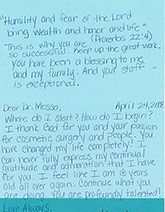 "Humility and fear of the Lord
bring wealth and honor and life."
(Proverbs 22:4)
This is why you are
so successful! Keep up the great work.
You have been a blessing to me
and my family. And your staff
is exceptional.
Dear Dr. Messa, April 29, 2008
Where do I start? How do I begin?
I thank God for you and your passion
for cosmetic surgery and people. You
have changed my life completely! I
can never fully express my continual
gratitude and admiration that I have
for you. I feel like I am 18 years
old all over again. Continue what you
are doing. You are profoundly talented!
Love Always,